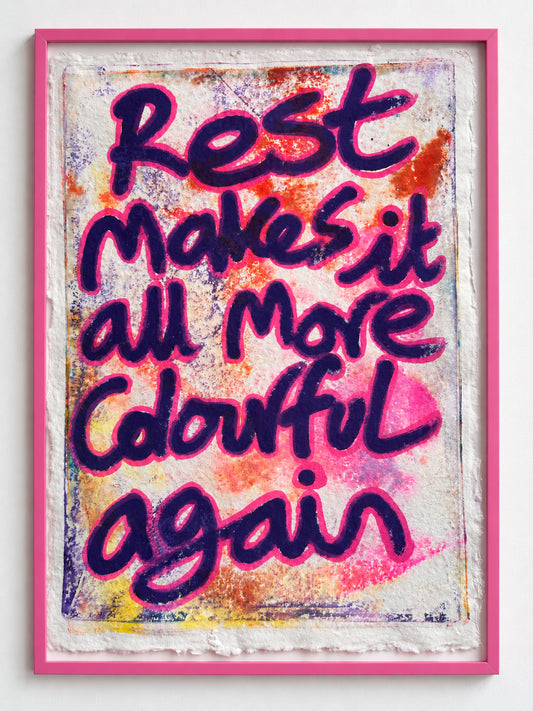 Rest
makes it
all more
Colourful
again